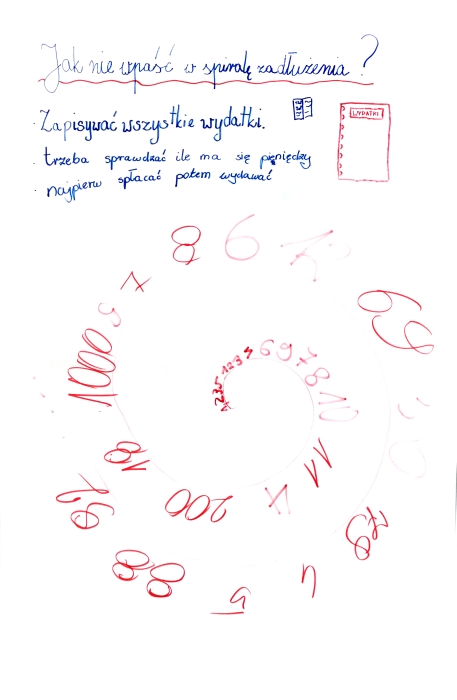 Jak nie wpaść w spiralę zadłużenia?
WYDATKI
· Zapisywać wszystkie wydatki.
· trzeba sprawdzać ile ma się pieniędzy
· najpierw spłacać potem wydawać
8 6
69
7
9
1000
6 9 7 8 10
11
18
200
79
88
4
5